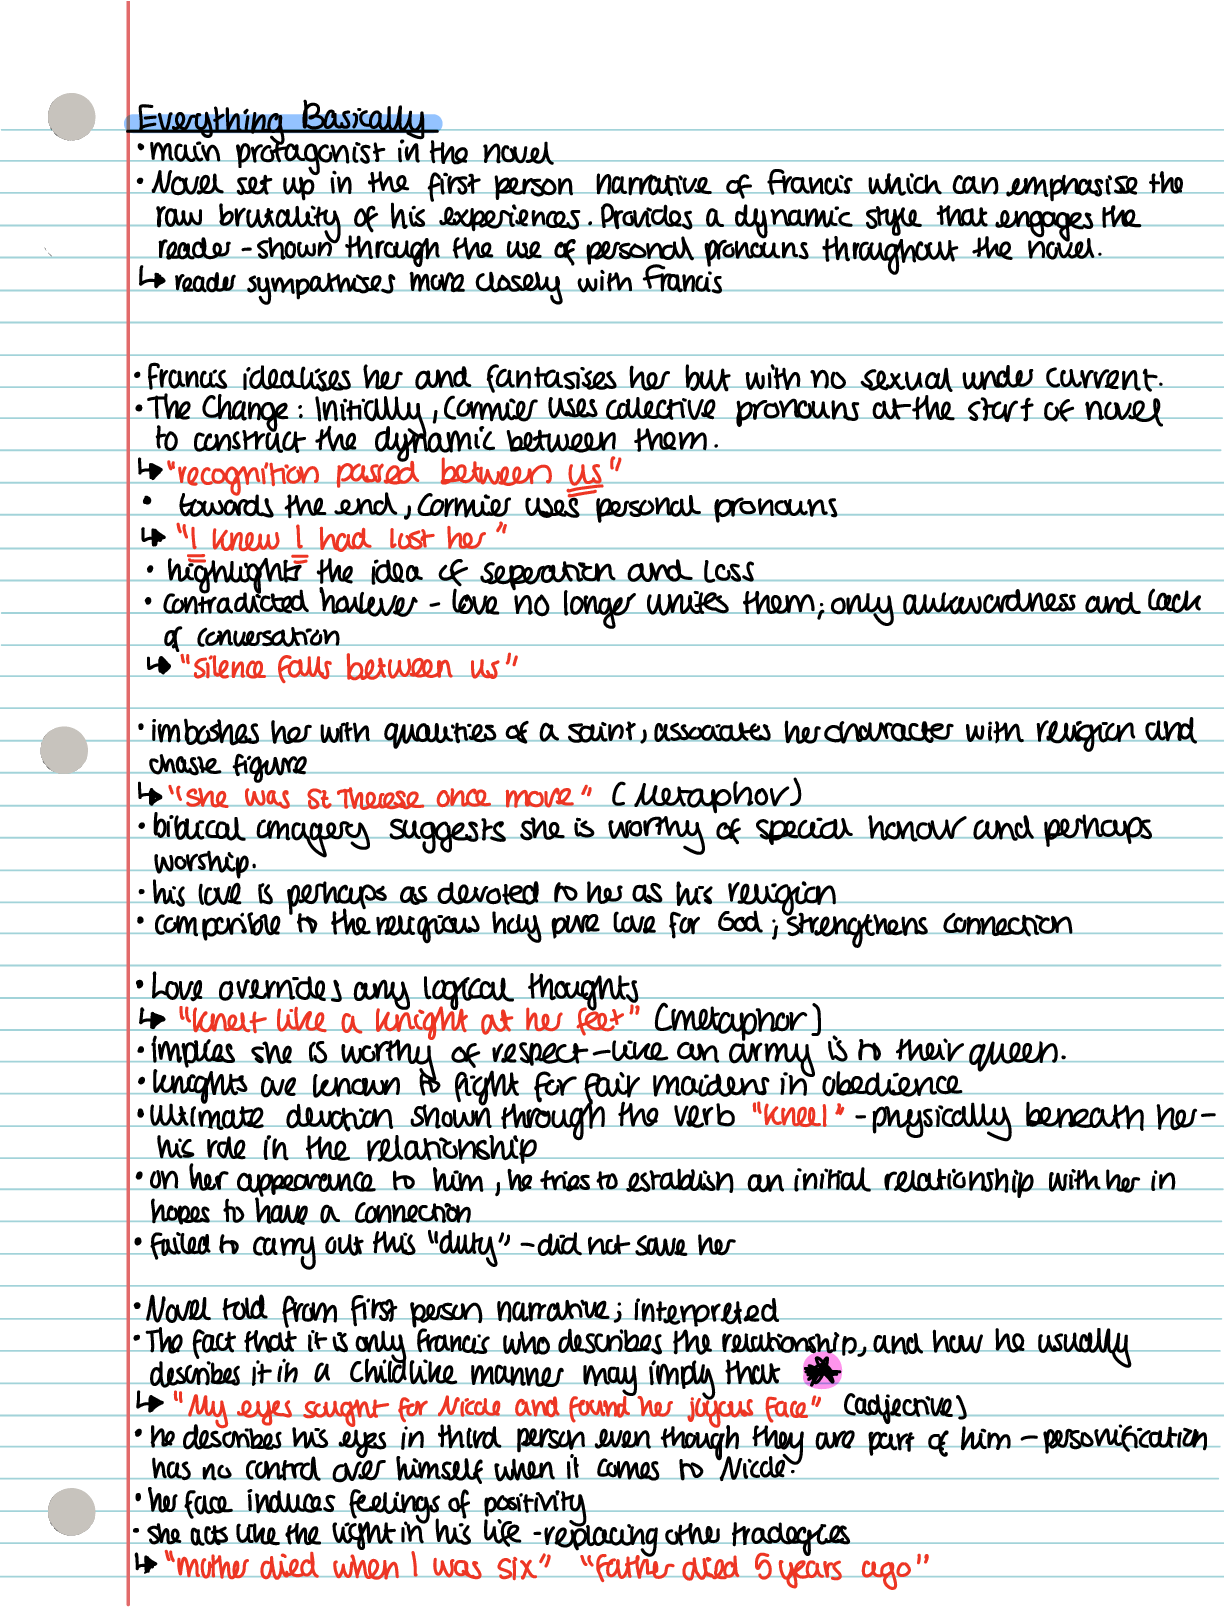 Everything Basically
• main protagonist in the novel
• Novel set up in the first person narrative of Francis which can emphasise the
raw brutality of his experiences. Provides a dynamic style that engages the
reader - shown through the use of personal pronouns throughout the novel.
↳ reader sympathises more closely with Francis
• Francis idealises her and fantasises her but with no sexual under current.
• The Change: Initially, Cormier uses collective pronouns at the start of novel
to construct the dynamic between them.
↳ "recognition passed between us"
• towards the end, Cormier uses personal pronouns
↳ "I knew I had lost her"
• highlights the idea of seperation and loss
• contradicted however - love no longer unites them; only awkwardness and lack
of conversation
↳ "Silence falls between us"
• imboshes her with qualities of a saint, associates her character with religion and
chaste figure
↳ "She was St Therese once more" (Metaphor)
• biblical imagery suggests she is worthy of special honour and perhaps
worship.
• his love is perhaps as devoted to her as his religion
• comparible to the religious holy pure love for God; strengthens connection
• Love overrides any logical thoughts
↳ "Knelt like a knight at her feet" (metaphor)
• implies she is worthy of respect - like an army is to their queen.
• knights are known to fight for fair maidens in obedience
• Ultimate devotion shown through the verb "kneel" - physically beneath her -
his role in the relationship
• on her appearance to him, he tries to establish an initial relationship with her in
hopes to have a connection
• failed to carry out this "duty" - did not save her
• Novel told from first person narrative; interpreted
• The fact that it is only Francis who describes the relationship, and how he usually
describes it in a childlike manner may imply that ★
↳ "My eyes sought for Nicole and found her joyous face" (adjective)
• he describes his eyes in third person even though they are part of him - personification
has no control over himself when it comes to Nicole.
• her face induces feelings of positivity
• she acts like the light in his life - replacing other tradegies
↳ "mother died when I was six" "father died 5 years ago"